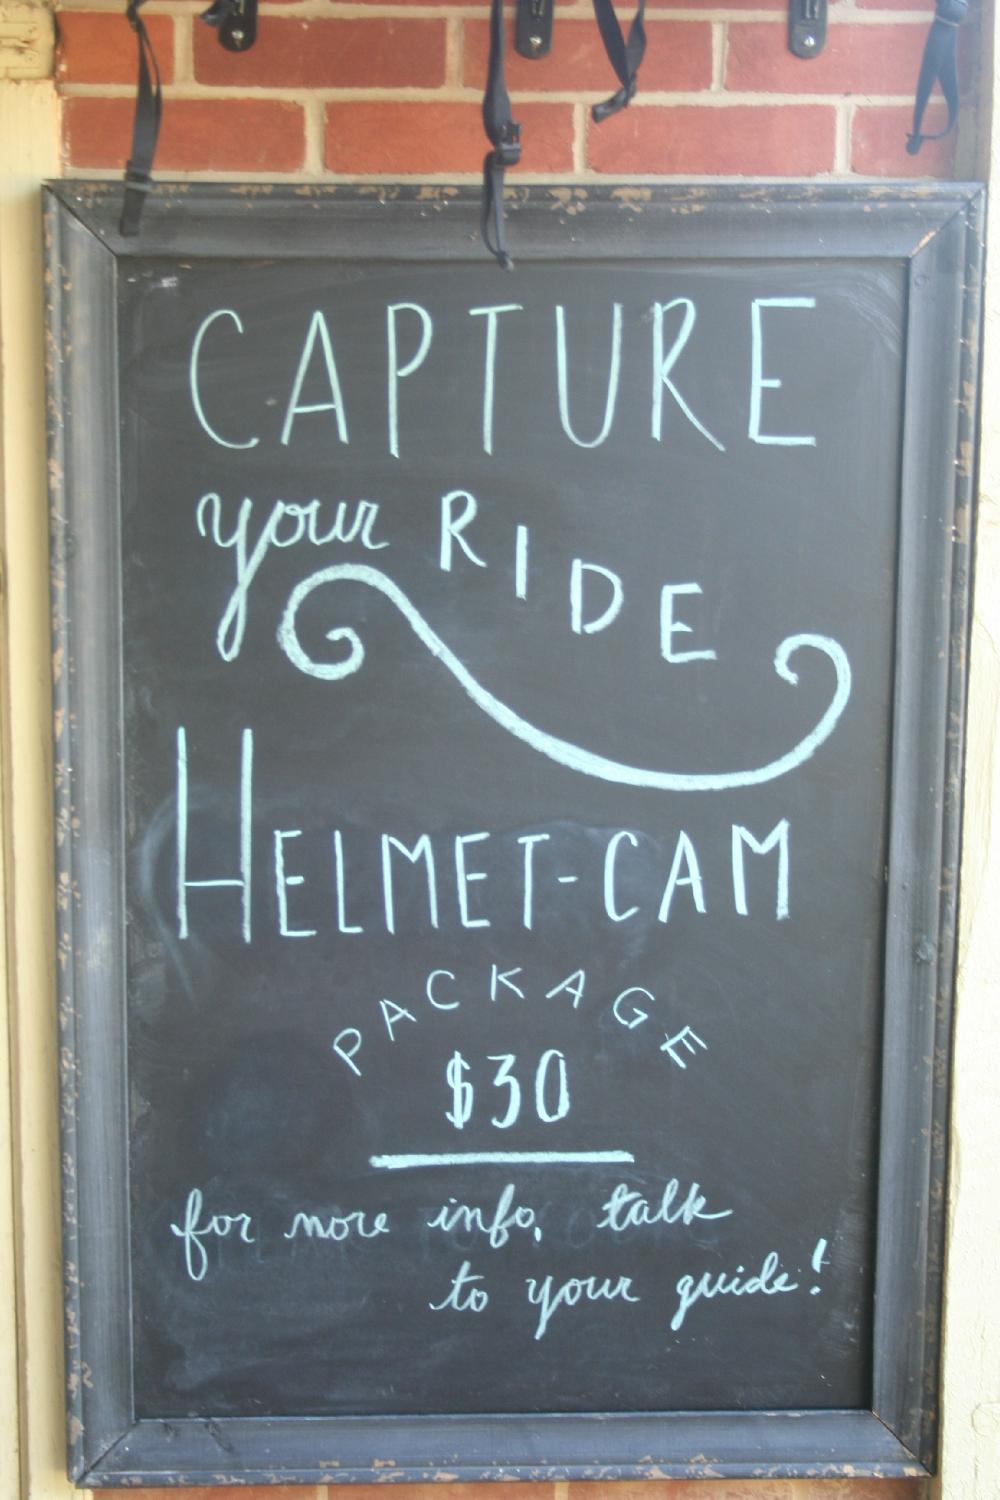 CAPTURE
your RIDE
HELMET-CAM
PACKAGE
$30
for more info, talk
to your guide!